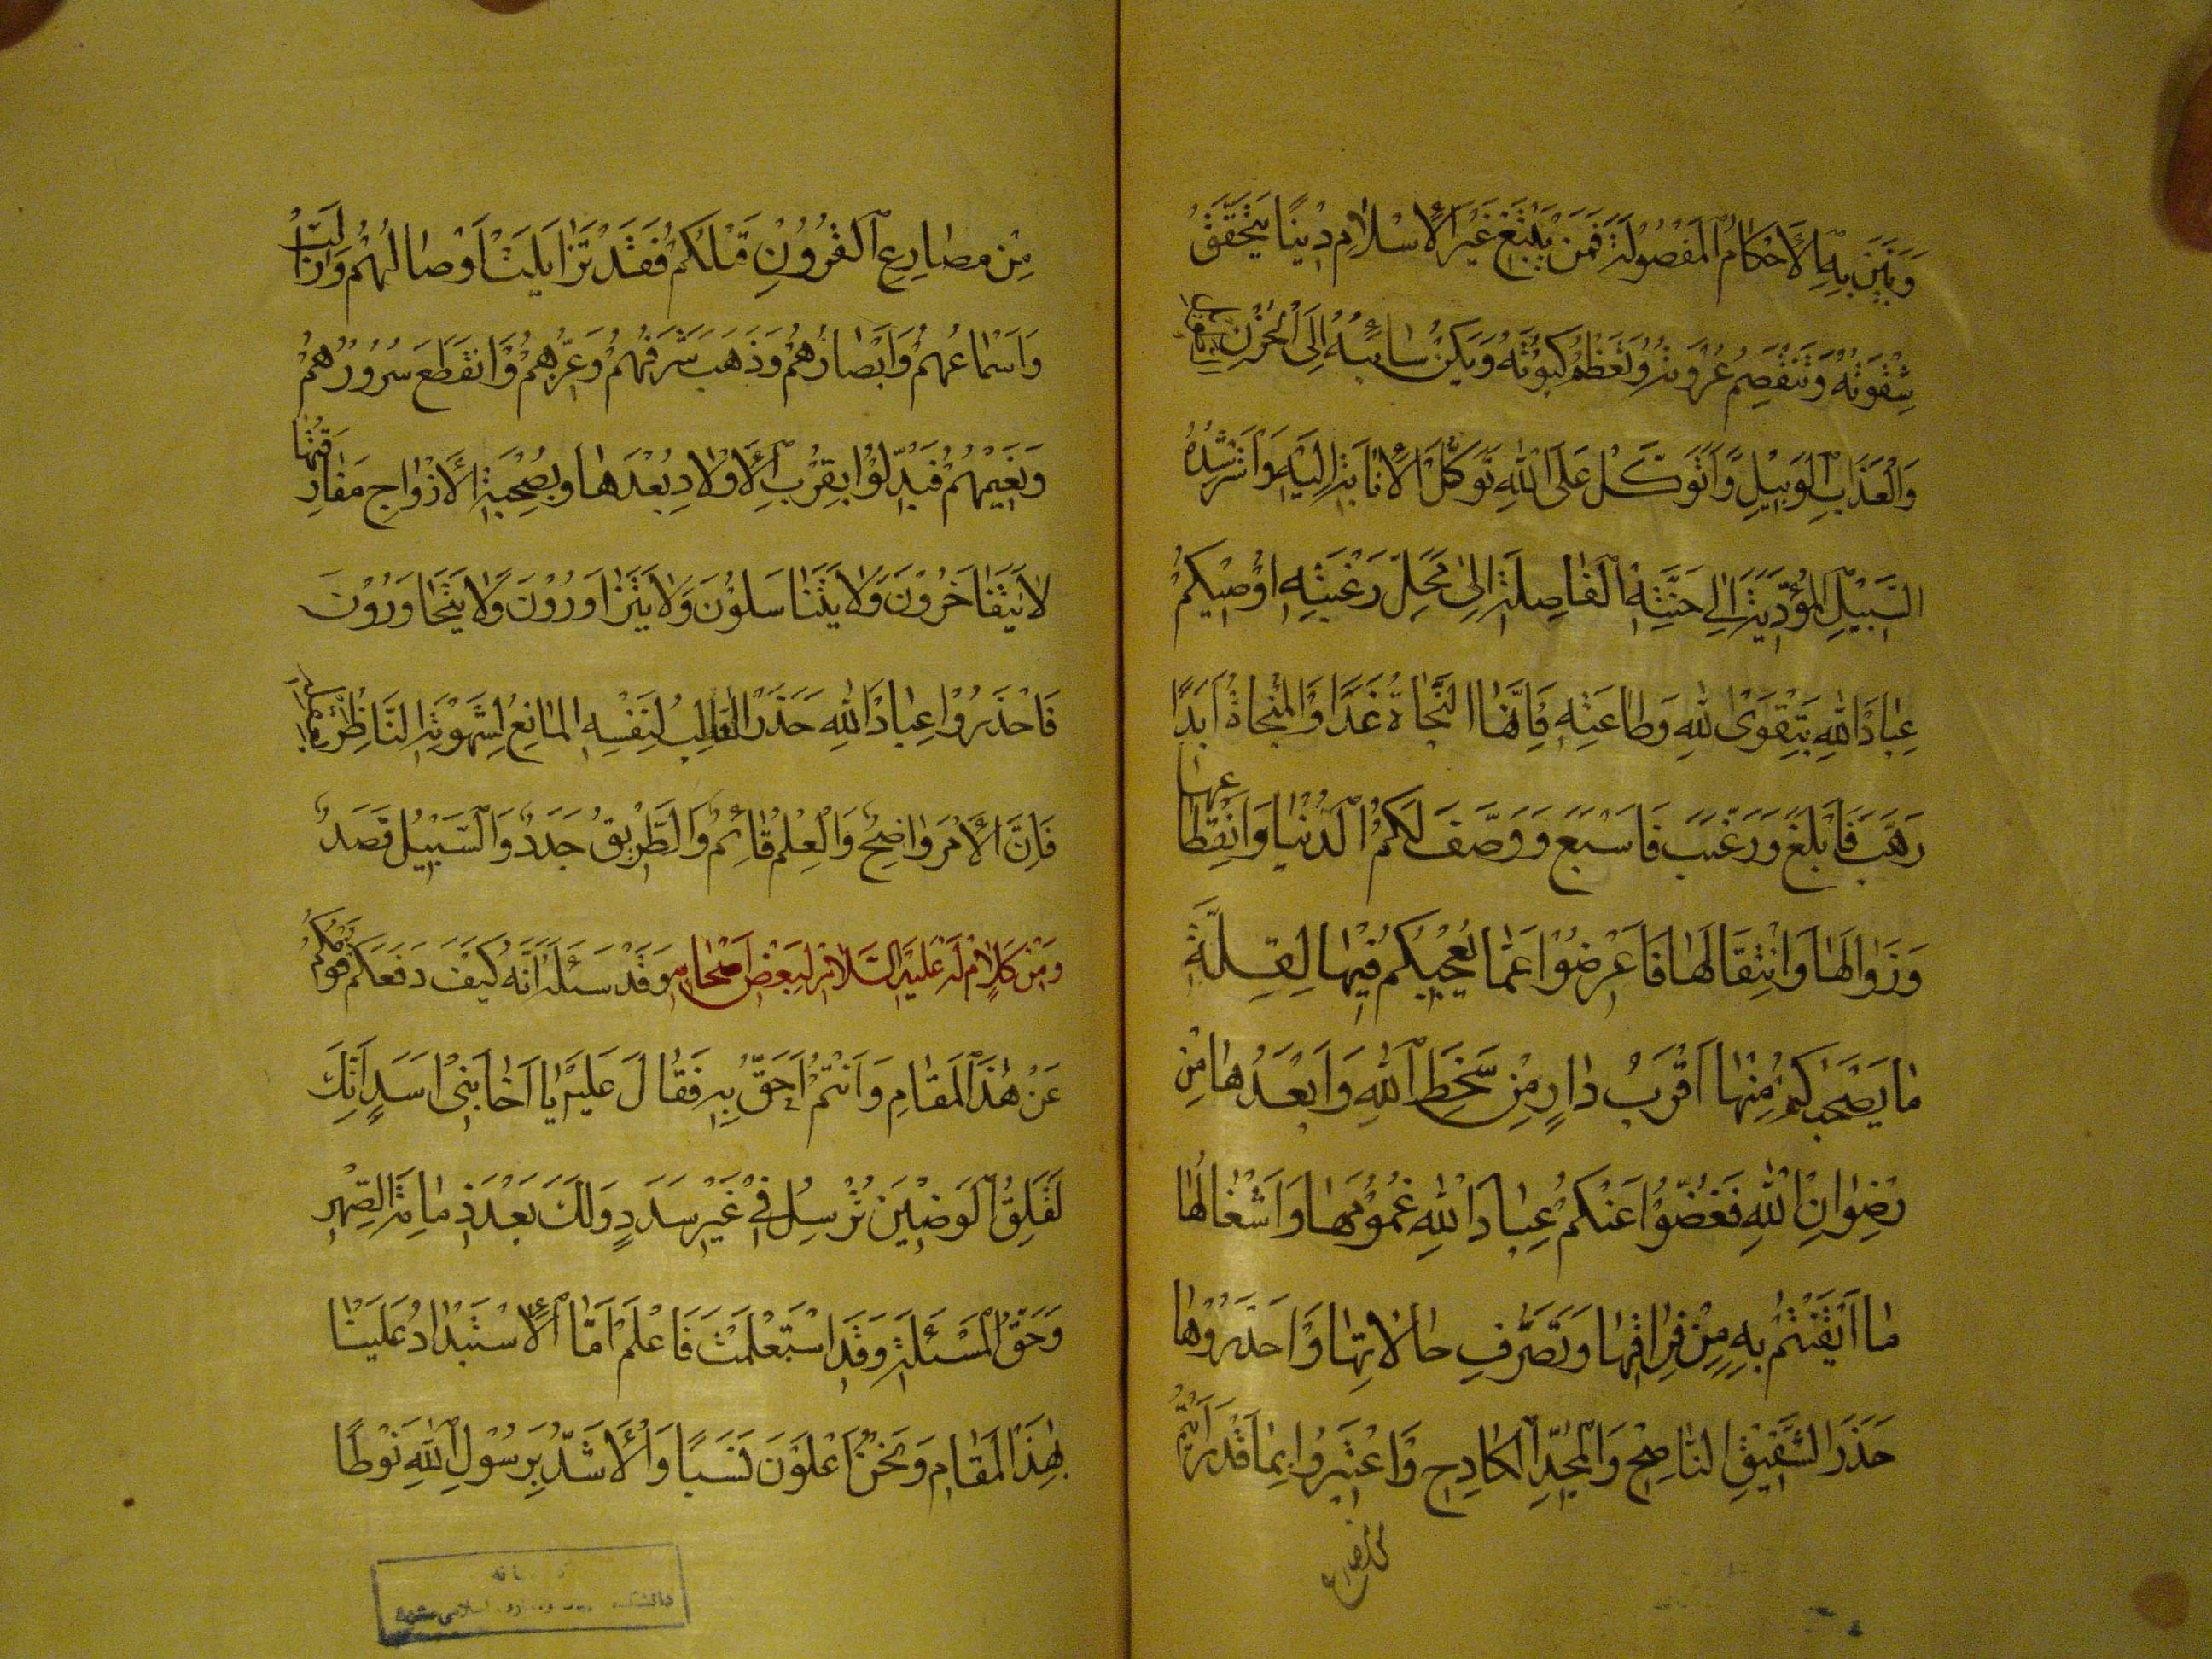 وَبَيَّنَ بِهِ الْاَحْكَامُ الْمَفْصُولَةَ فَمَنْ يَبْتَغِ غَيْرَ الْاِسْلَامِ دِيْنًا يَتَحَقَّقُ
شِقْوَتُهُ وَتَنْفَصِمُ عُرْوَتُهُ وَتَعْظُمُ كَبْوَتُهُ وَيَكُنْ مَابُهُ اِلَى الْحُزْنِ الطويل
وَالْعَذَابِ الْوَبِيْلِ وَاَتَوَكَّلُ عَلَى اللهِ تَوَكُّلَ الْاِنَابَةِ اِلَيْهِ وَاَسْتَرْشِدُهُ
السَّبِيْلَ الْمُؤَدِّيَةَ اِلٰى جَنَّتِهِ الْقَاصِدَةَ اِلٰى مَحَلِّ رَغْبَتِهِ اُوْصِيْكُمْ
عِبَادَ اللهِ بِتَقْوَى اللهِ وَطَاعَتِهِ فَاِنَّهَا النَّجَاةُ غَدًا وَالْمَنْجَاةُ اَبَدًا
رَهَّبَ فَاَبْلَغَ وَرَغَّبَ فَاَسْبَغَ وَوَصَفَ لَكُمُ الدُّنْيَا وَانْقِطَاعَهَا
وَزَوَالَهَا وَانْتِقَالَهَا فَاَعْرِضُوْا عَمَّا يُعْجِبُكُمْ فِيْهَا لِقِلَّةِ
مَا يَصْحَبُكُمْ مِنْهَا اَقْرَبُ دَارٍ مِنْ سَخَطِ اللهِ وَاَبْعَدُهَا مِنْ
رِضْوَانِ اللهِ فَغُضُّوْا عَنْكُمْ عِبَادَ اللهِ غُمُوْمَهَا وَاَشْغَالَهَا
مَا اَيْقَنْتُمْ بِهِ مِنْ فِرَاقِهَا وَتَصَرُّفِ حَالَاتِهَا وَاحْذَرُوْهَا
حَذَرَ الشَّفِيْقِ النَّاصِحِ وَالْمُجِدِّ الْكَادِحِ وَاعْتَبِرُوا بِمَا قَدْ رَاَيْتُمْ
مِنْ مَصَارِعِ الْقُرُوْنِ قَبْلَكُمْ فَقَدْ تَزَايَلَتْ اَوْصَالُهُمْ وَزَالَتْ
وَاَسْمَاعُهُمْ وَاَبْصَارُهُمْ وَذَهَبَ شَرَفُهُمْ وَعِزُّهُمْ وَانْقَطَعَ سُرُوْرُهُمْ
وَنَعِيْمُهُمْ فَبُدِّلُوْا بِقُرْبِ الْاَوْلَادِ بُعْدَهَا وَبِصُحْبَةِ الْاَزْوَاجِ مُفَارَقَتَهَا
لَا يَتَفَاخَرُوْنَ وَلَا يَتَنَاسَلُوْنَ وَلَا يَتَزَاوَرُوْنَ وَلَا يَتَجَاوَرُوْنَ
فَاحْذَرُوْا عِبَادَ اللهِ حَذَرَ الْغَالِبِ لِنَفْسِهِ الْمَانِعِ لِشَهْوَتِهِ النَّاظِرِ بعقله
فَاِنَّ الْاَمْرَ وَاضِحٌ وَالْعِلْمُ قَائِمٌ وَالطَّرِيْقُ جَدَدٌ وَالسَّبِيْلُ قَصَدٌ
وَمِنْ كَلَامٍ لَهُ عَلَيْهِ السَّلَامُ لِبَعْضِ اَصْحَابِهِ وَقَدْ سَئَلَهُ اَنَّهُ كَيْفَ دَفَعَكُمْ قَوْمُكُمْ
عَنْ هٰذَا الْمَقَامِ وَاَنْتُمْ اَحَقُّ بِهِ فَقَالَ عَلَيْهِ يَا اَخَا بَنِيْ اَسَدٍ اِنَّكَ
لَقَلِقُ الْوَضِيْنِ تُرْسِلُ فِيْ غَيْرِ سَدَدٍ وَلَكَ بَعْدُ ذِمَامَةُ الصِّهْرِ
وَحَقُّ الْمَسْئَلَةِ وَقَدِ اسْتَعْلَمْتَ فَاعْلَمْ اَمَّا الْاِسْتِبْدَادُ عَلَيْنَا
بِهٰذَا الْمَقَامِ وَنَحْنُ اَعْلَوْنَ نَسَبًا وَالْاَشَدُّ بِرَسُوْلِ اللهِ نَوْطًا